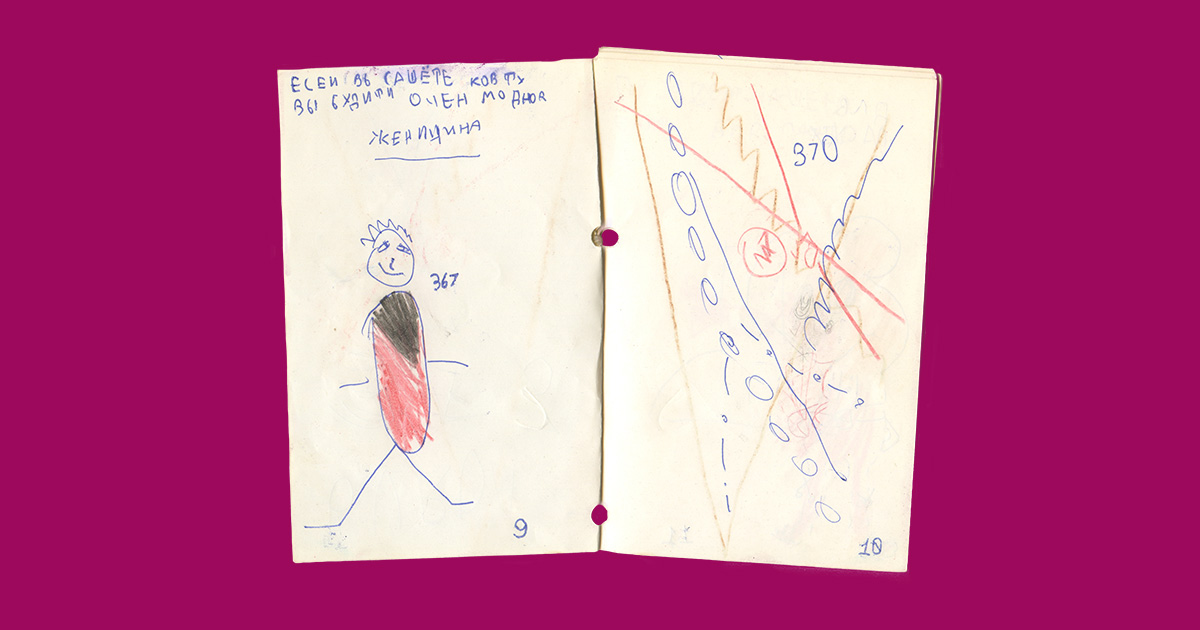 ЕСЕИ ВЬ САШЁТЕ КОВТУ
ВЫ БУДИТИ ОЧЕН МОДНОЯ
ЖЕНЩИНА
367
9
370
10